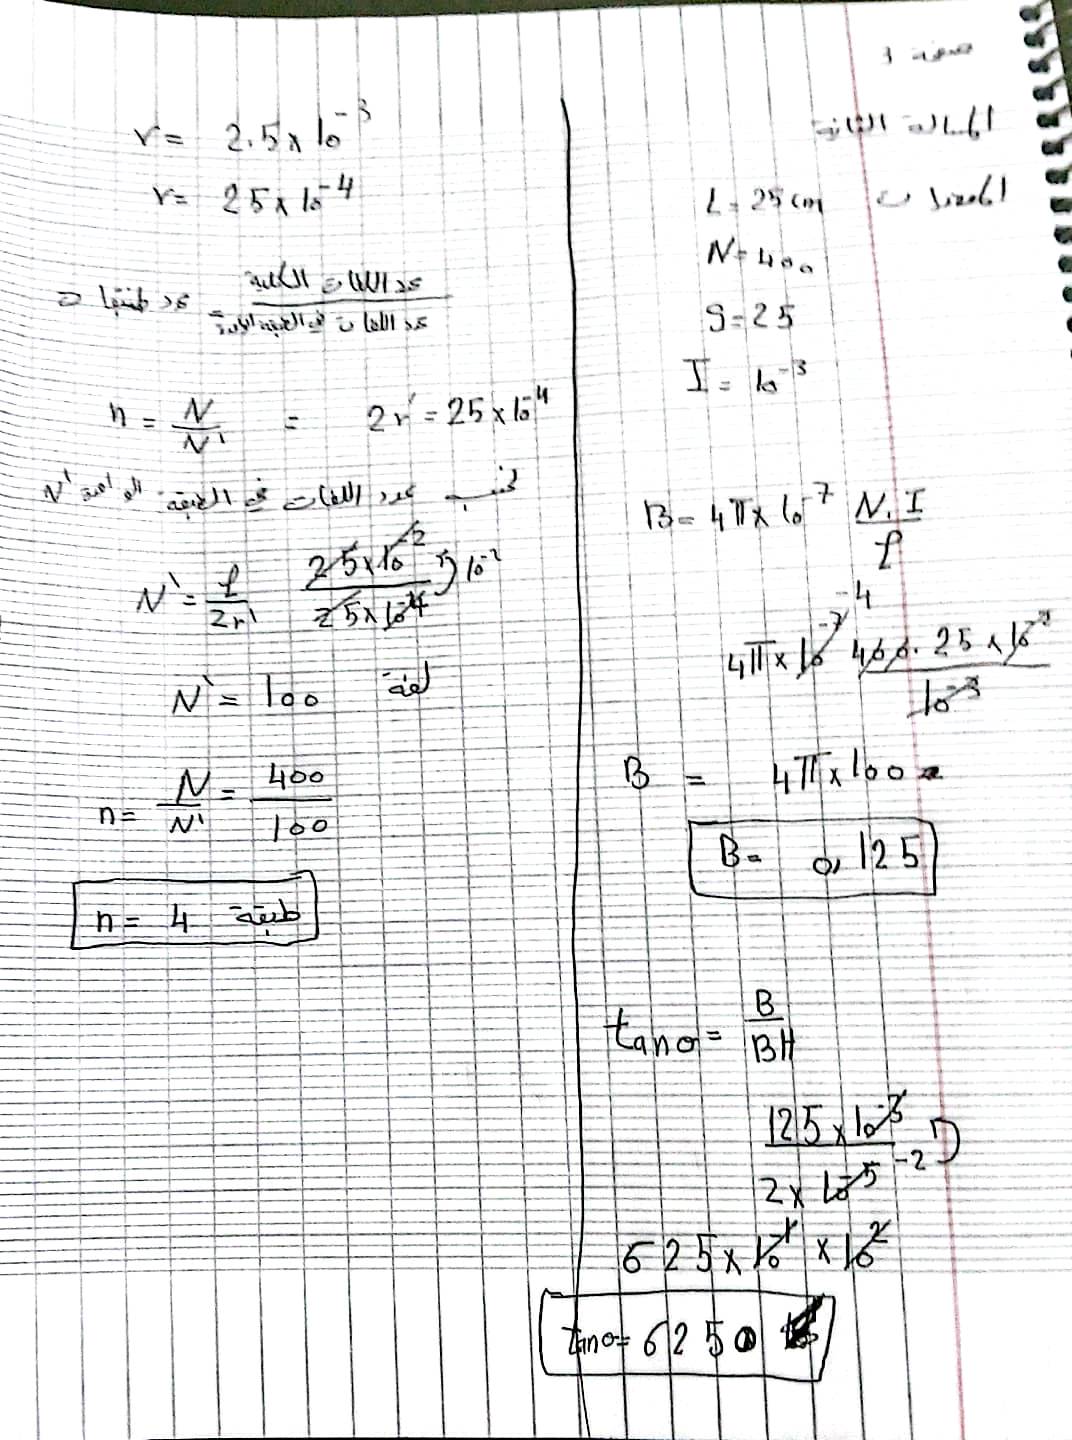 صفحة 3
المسألة الثانية
المعطيات L = 25 cm
N = 400
S = 25
I = 10^-3
B = 4π × 10^-7 N.I / ℓ
4π × 10^-7 400. 25 × 10^-3 / 10^-3
-4
B = 4π × 100
B = 0,125
tanσ = B / BH
125 × 10^-3 / 2 × 10^-5 -2
625 × 10^1 × 10^2
tanσ = 6250
r = 2.5 × 10^-3
r = 25 × 10^-4
عدد طبقات = عدد اللفات الكلية / عدد اللفات في الطبقة الواحدة
n = N / N' = 2r' = 25 × 10^-4
نحسب عدد اللفات في الطبقة الواحدة N'
N' = ℓ / 2r' 25 × 10^-2 / 25 × 10^-4 10^-2
N' = 100 لفة
n = N / N' = 400 / 100
n = 4 طبقة